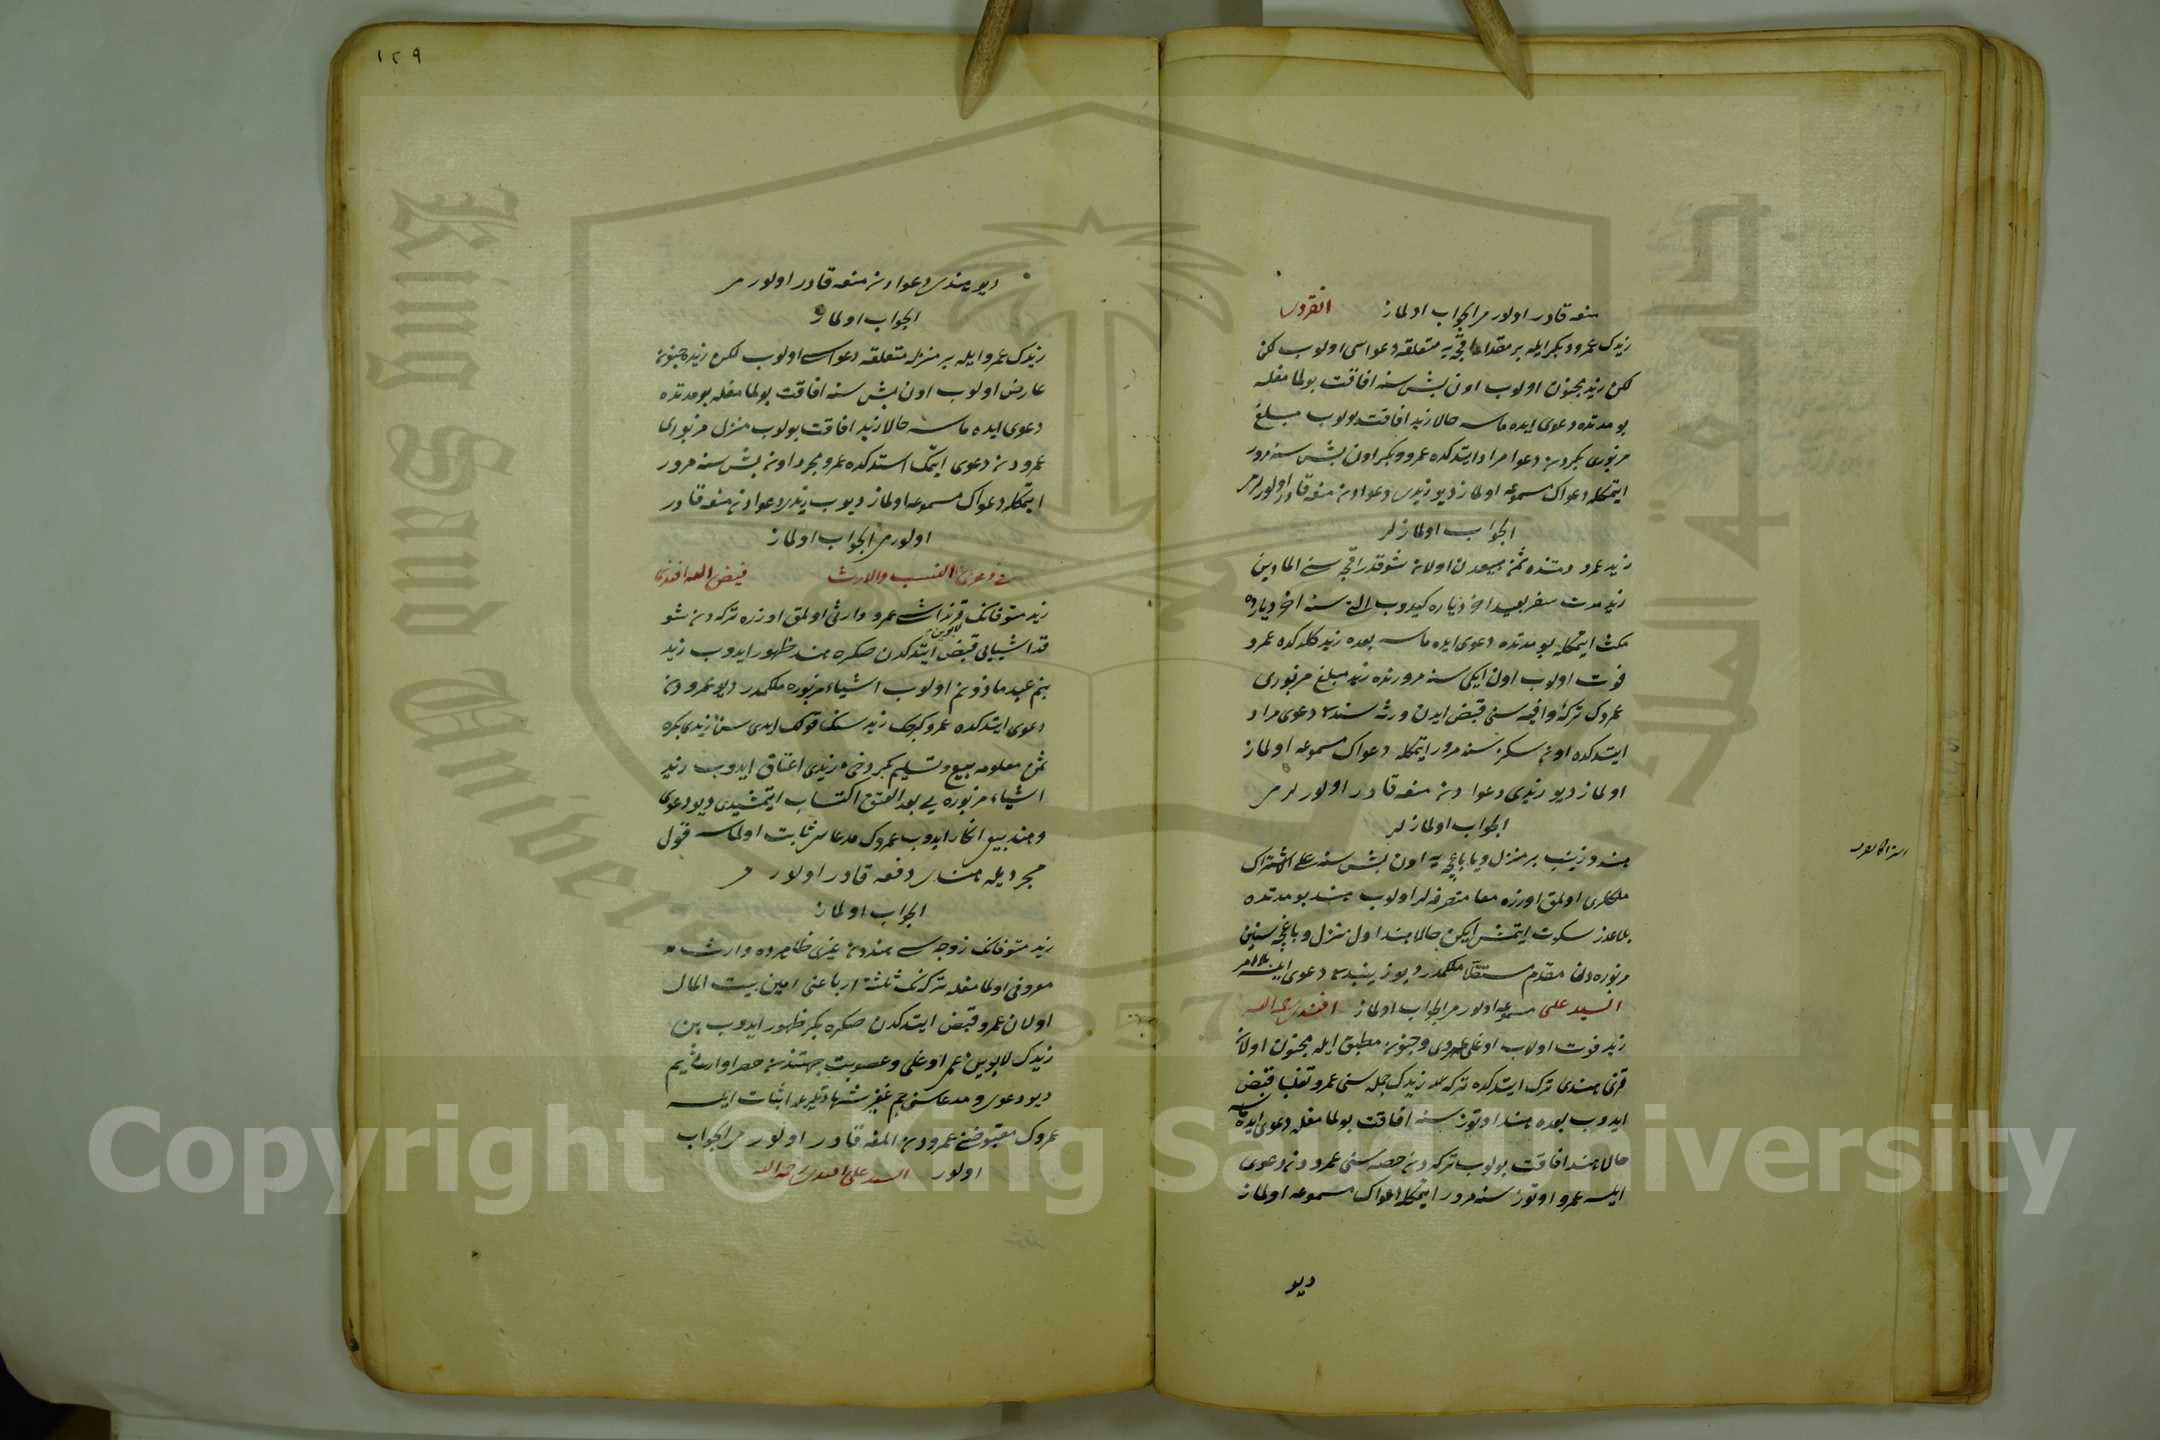 منعه قادر اولورمی الجواب اولماز انقروی
زیدک عمرو وبکر ایله بر مقدار اقچه یه متعلقه دعواسی اولوب لکن
لکن زید مجنون اولوب اون بش سنه افاقت بولمامغله
بو مدتده دعوی ایده مامسه حالا زید افاقت بولوب مبلغ
مزبوری بکردن دعوا مراد ایتدکده عمرو وبکر اون بش سنه مرور
ایتمکله دعواک مسموعه اولماز دیو زیدی دعوادن منعه قادر اولورلرمی
الجواب اولمازلر
زید عمرو ذمتنده ثمن مبیعدن اولان شوقدر اقچه سنی المادین
زید مدت سفر بعید اخر دیاره کیدوب التی سنه اخر دیارده
مکث ایتمکله بو مدتده دعوی ایده مامسه بعده زید کلدکده عمرو
فوت اولوب اون ایکی سنه مرورنده زید مبلغ مزبوری
عمروک ترکه وافیه سنی قبض ایدن ورثه سندن دعوی مراد
ایتدکده اون سکز سنه مرور ایتمکله دعواک مسموعه اولماز
اولماز دیو زیدی دعوادن منعه قادر اولورلرمی
الجواب اولمازلر
هند وزینب بر منزل ویا باغچه یه اون بش سنه علی الاشتراک
ملکلری اولمق اوزره معا متصرفه لر اولوب هند بو مدتده
بلاعذر سکوت ایتمش ایکن حالا هند اول منزل وباغچه سنین
مزبوره دن مقدم مستقلا ملکمدر دیو زینبدن دعوی ایلسه
السید علی مسموعه اولورمی الجواب اولماز افندی رحمه الله
زید فوت اولوب اوغلی عمروی وجنون مطبق ایله مجنون اولان
قزی هندی ترک ایتدکده ترکه زیدک جمله سنی عمرو تغلبا قبض
ایدوب بعده هند اوتوز سنه افاقت بولمامغله دعوی ایده مامسه
حالا هند افاقت بولوب ترکه دن حصه سنی عمرودن دعوی
ایلسه عمرو اوتوز سنه مرور ایتمکله دعواک مسموعه اولماز
دیو
١٢٩
دیو هندی دعوادن منعه قادر اولورمی
الجواب اولماز
زیدک عمرو ایله بر منزله متعلقه دعواسی اولوب لکن زیده جنون
عارض اولوب اون بش سنه افاقت بولمامغله بو مدتده
دعوی ایده مامسه حالا زید افاقت بولوب منزل مزبوری
عمرودن دعوی ایتمک استدکده عمرو مجرد اون بش سنه مرور
ایتمکله دعواک مسموعه اولماز دیوب زیدی دعوادن منعه قادر
اولورمی الجواب اولماز
فی دعوی النسب والارث فیض الله افندی
زید متوفانک قرنداشی عمرو وارثی اولمق اوزره ترکه دن شو
قدر اشیایی قبض ایتدکدن صکره هند ظهور ایدوب زید
بنم عبد مأذونم اولوب اشیاء مزبوره ملکمدر دیو عمرودن
دعوی ایتدکده عمرو کرچک زید سنک قولک ایدی سن زیدی بکره
ثمن معلومه بیع وتسلیم بکر دخی زیدی اعتاق ایدوب زید
اشیاء مزبوره یی بعد العتق اکتساب ایتمشیدی دیو دعوی
وهند بیعی انکار ایدوب عمروک مدعاسی ثابت اولمسه قول
مجردیله هندی دفعه قادر اولورمی
الجواب اولماز
زید متوفانک زوجه سی هنددن غیری ظاهرده وارث
معروفی اولمامغله ترکه نک ثلثة ارباعنی امین بیت المال
اولان عمرو قبض ایتدکدن صکره بکر ظهور ایدوب بن
زیدک لابوین عمی اوغلی وعصوبت جهتندن حصرا وارثی یم
دیو دعوی ومدعاسنی جم غفیر شهادتلریله اثبات ایلسه
عمروک مقبوضنی عمرودن المغه قادر اولورمی الجواب
اولور السید علی افندی رحمه الله
Copyright © King Saud University
King Saud University
1957